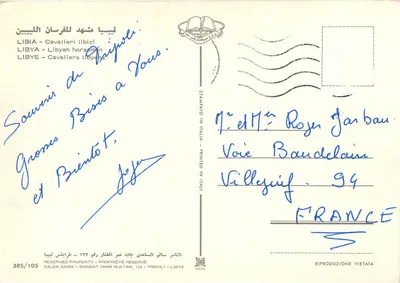 ليبيا مشهد للفرسان الليبيين
LIBIA - Cavalieri libici
LIBYA - Libyan horsemen
LIBYE - Cavaliers libyens
Souvenir de Tripoli.
Grosses Bises a Vous.
et Bientôt.
STAMPATO IN ITALIA - PRINTED IN ITALY
Mr et Mme Roger Jarbau
Voie Baudelaire
Villejuif 94
FRANCE
RESERVED PROPERTY - PROPRIÉTÉ RÉSERVÉE
TRIPOLI / LIBYA
385/105
RIPRODUZIONE VIETATA